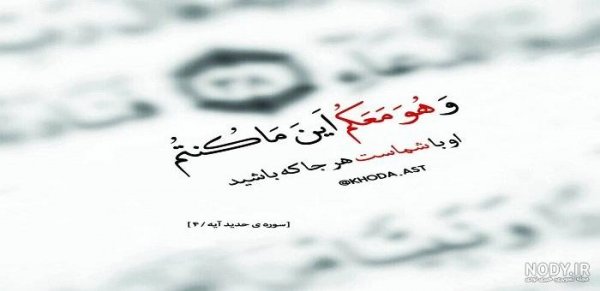 وَ هُوَ مَعَكُمْ اَینَ مَا کُنتُمْ
او با شماست هر جا که باشید
@KHODA.AST
[سوره ی حدید آیه /۴]
NODY.IR